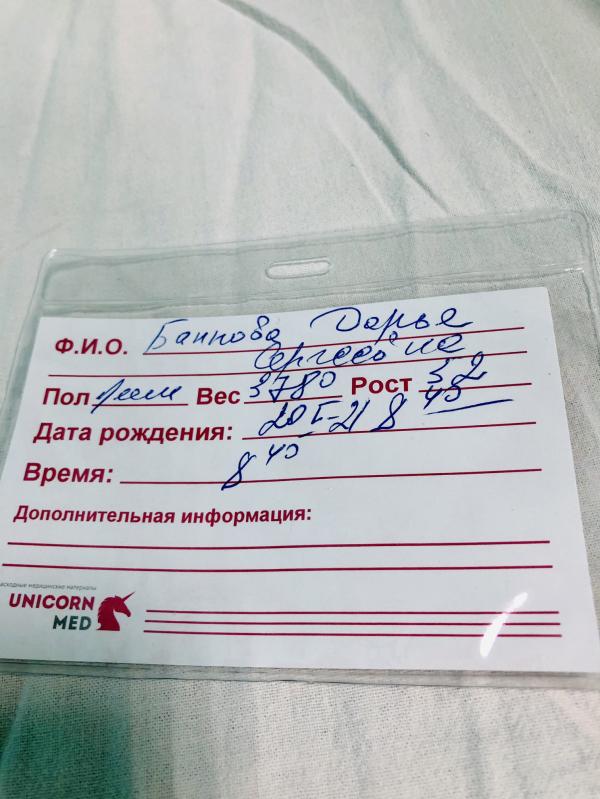 Ф.И.О. Баннова Дарья
Сергеевна
Пол жен Вес 3780 Рост 52
Дата рождения: 20 I-21 8 40
Время: 8 40
Дополнительная информация:
расходные медицинские материалы
UNICORN
MED